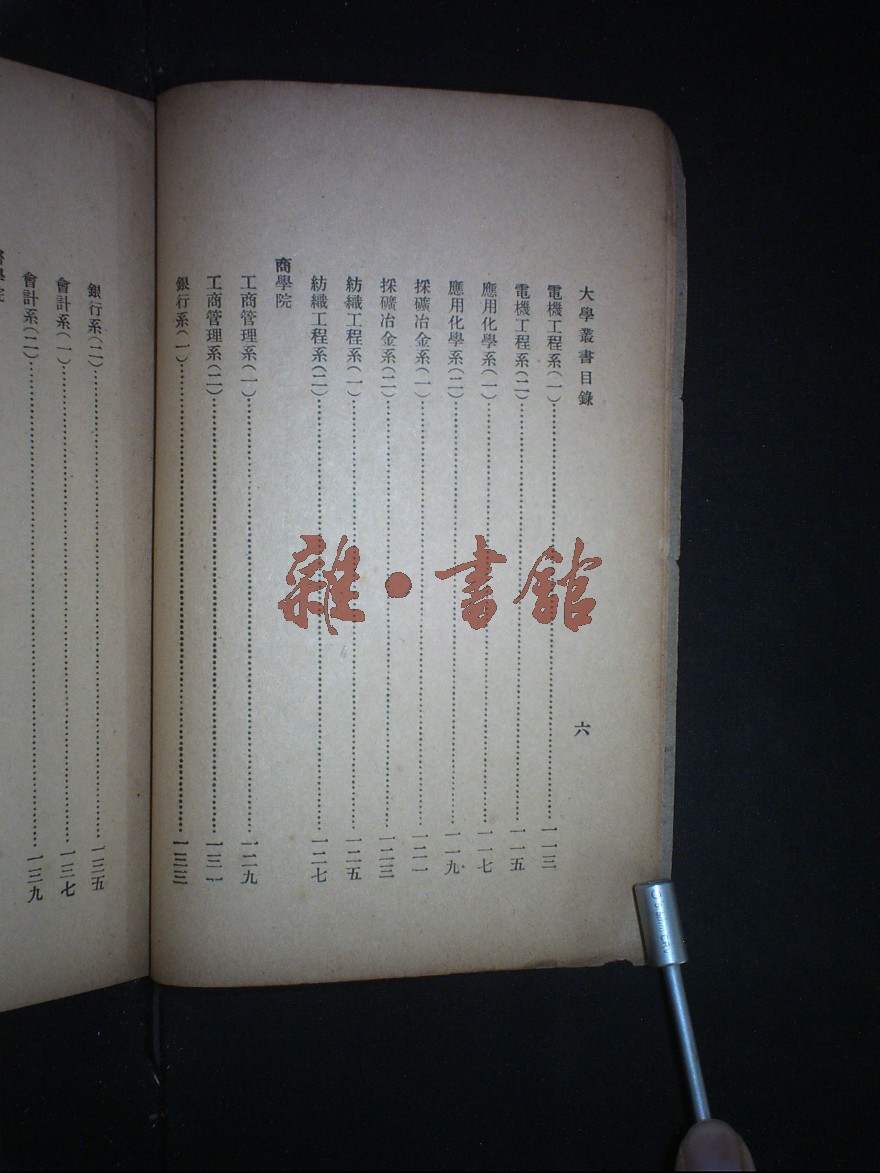 大學叢書目錄
六
電機工程系(一)……一一三
電機工程系(二)……一一五
應用化學系(一)……一一七
應用化學系(二)……一一九
採礦冶金系(一)……一二一
採礦冶金系(二)……一二三
紡織工程系(一)……一二五
紡織工程系(二)……一二七
商學院
工商管理系(一)……一二九
工商管理系(二)……一三一
銀行系(一)……一三三
銀行系(二)……一三五
會計系(一)……一三七
會計系(二)……一三九
雜·書館